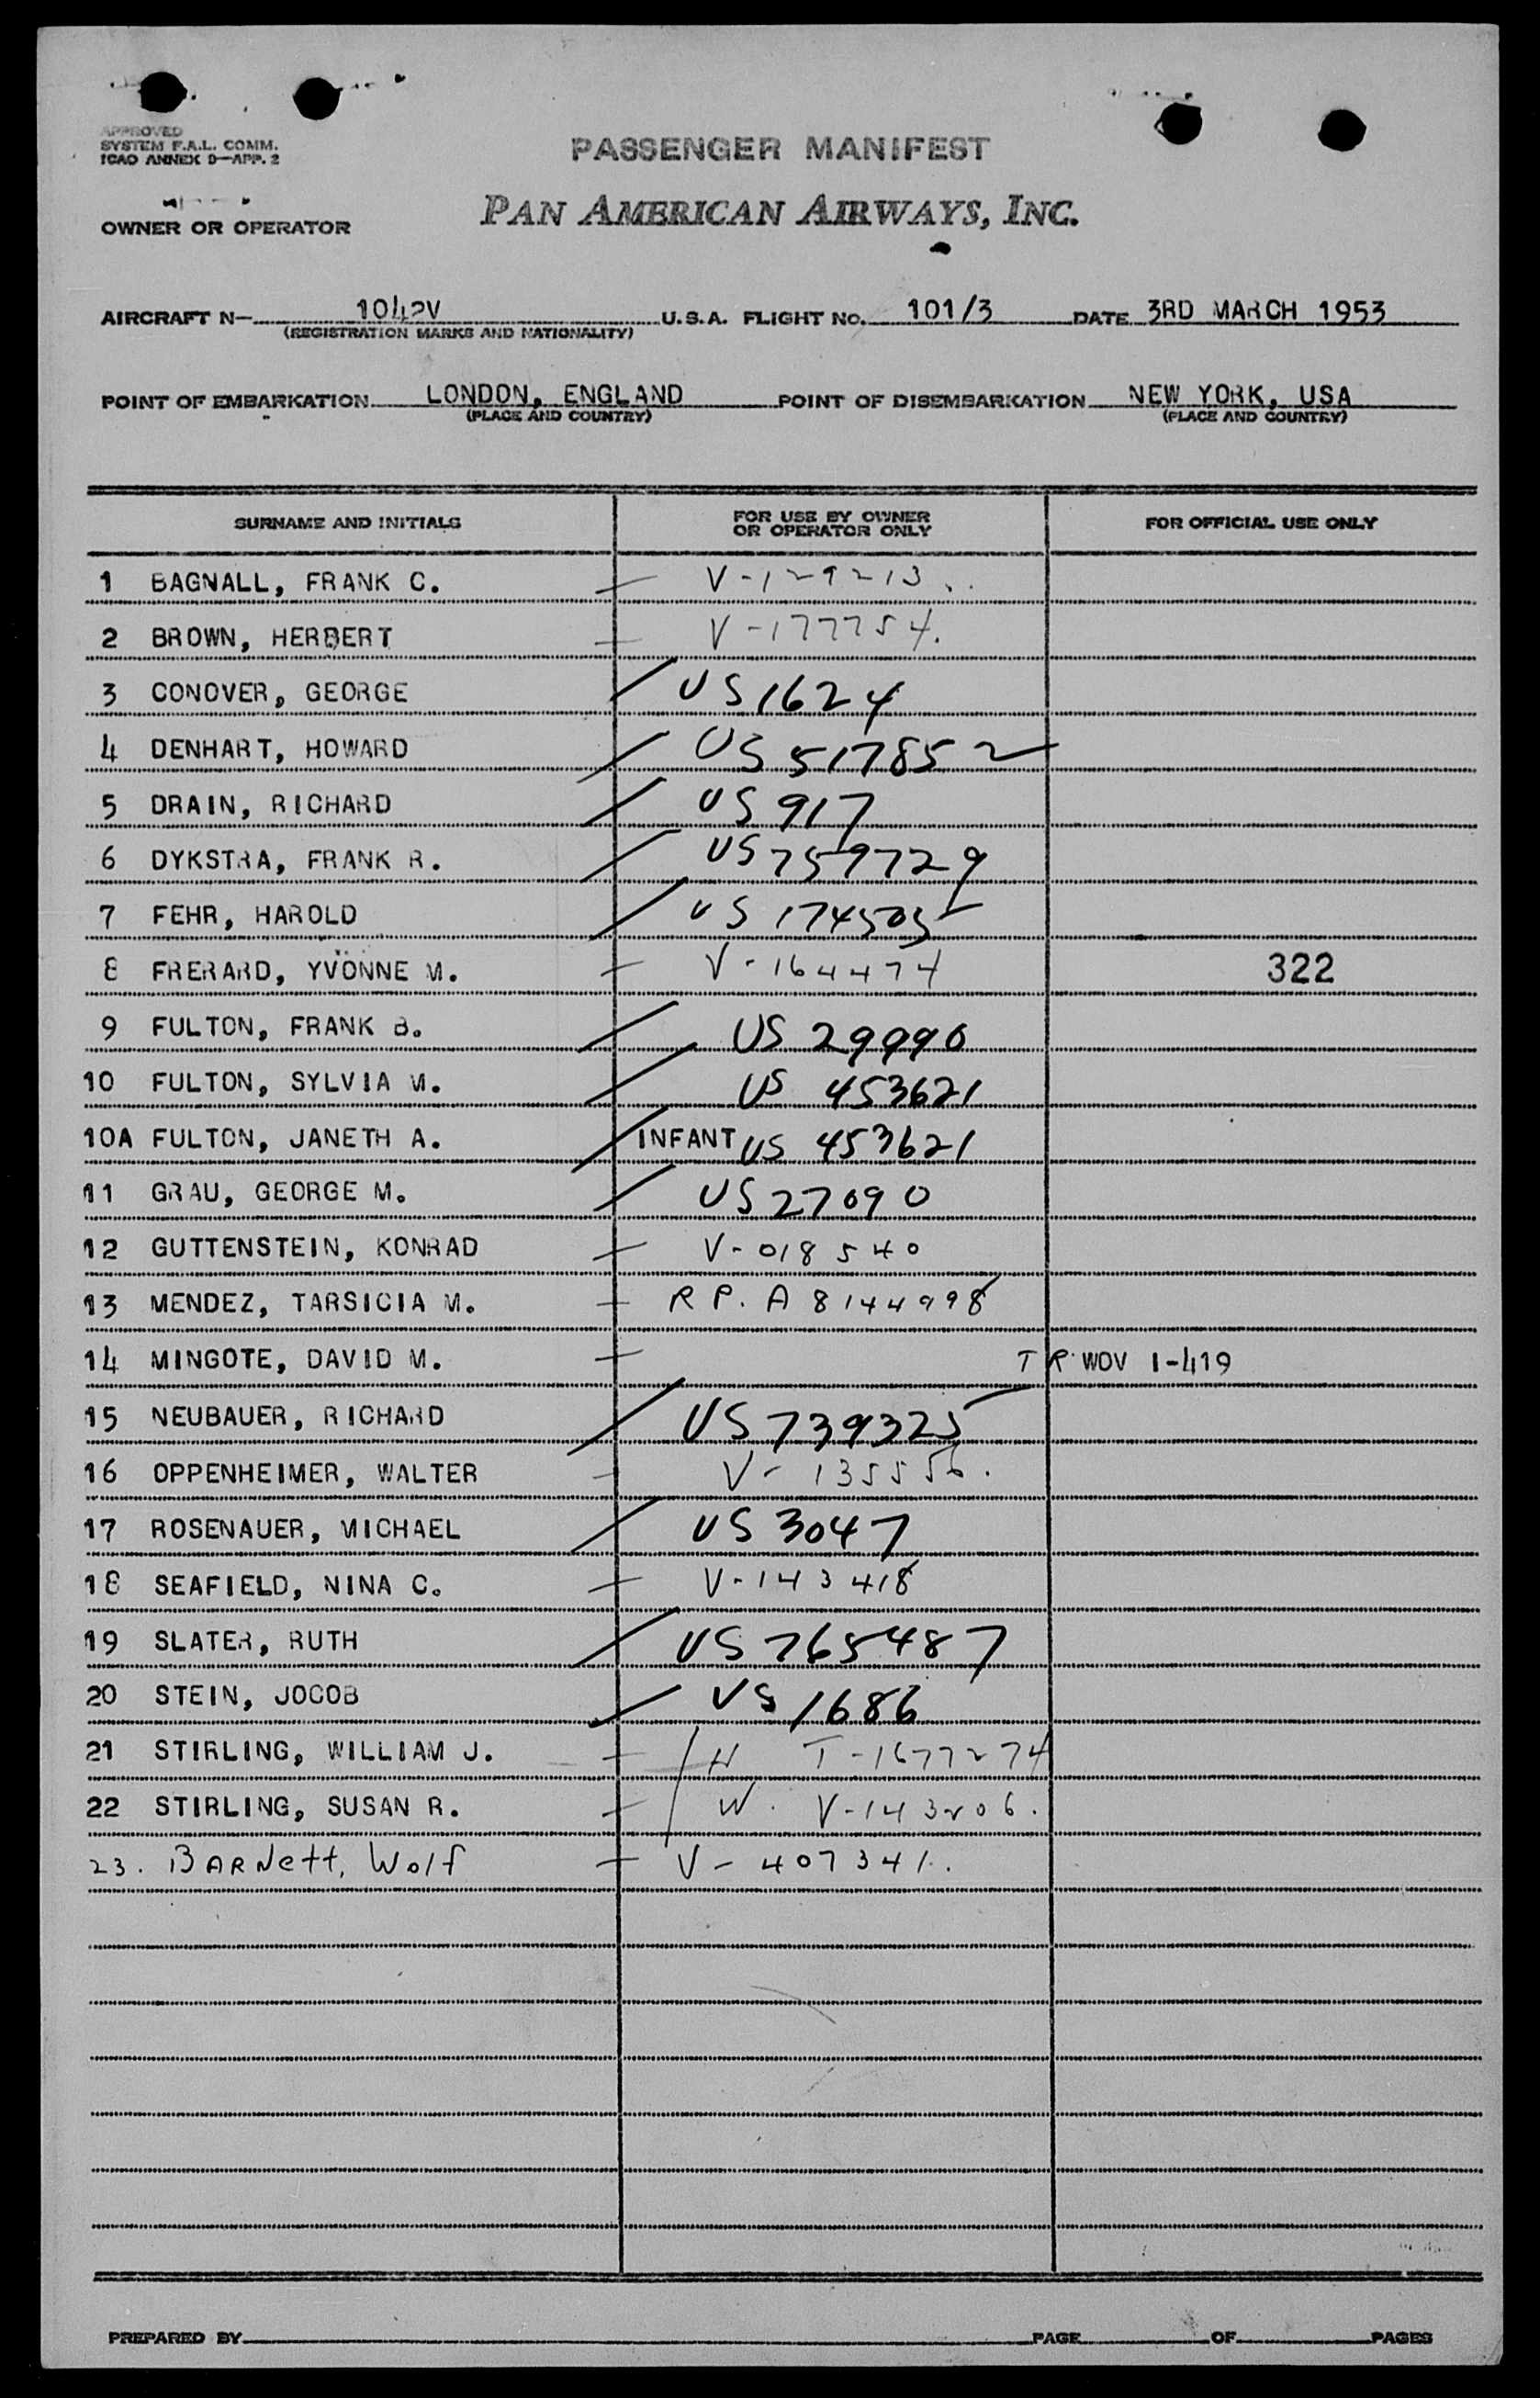 APPROVED
SYSTEM F.A.L. COMM.
ICAO ANNEX 9—APP. 2
PASSENGER MANIFEST
OWNER OR OPERATOR PAN AMERICAN AIRWAYS, INC.
AIRCRAFT N— 1042V U.S.A. FLIGHT No. 101/3 DATE 3RD MARCH 1953
(REGISTRATION MARKS AND NATIONALITY)
POINT OF EMBARKATION LONDON, ENGLAND POINT OF DISEMBARKATION NEW YORK, USA
(PLACE AND COUNTRY) (PLACE AND COUNTRY)
SURNAME AND INITIALS FOR USE BY OWNER OR OPERATOR ONLY FOR OFFICIAL USE ONLY
1 BAGNALL, FRANK C. V-129213
2 BROWN, HERBERT V-177754.
3 CONOVER, GEORGE US 1624
4 DENHART, HOWARD US 517852
5 DRAIN, RICHARD US 917
6 DYKSTRA, FRANK R. US 759729
7 FEHR, HAROLD US 174505
8 FRERARD, YVONNE M. V-164474 322
9 FULTON, FRANK B. US 29990
10 FULTON, SYLVIA M. US 453621
10A FULTON, JANETH A. INFANT US 453621
11 GRAU, GEORGE M. US 27090
12 GUTTENSTEIN, KONRAD V-018540
13 MENDEZ, TARSICIA M. R P. A 8144998
14 MINGOTE, DAVID M. T R WOV 1-419
15 NEUBAUER, RICHARD US 739325
16 OPPENHEIMER, WALTER V-135556.
17 ROSENAUER, MICHAEL US 3047
18 SEAFIELD, NINA C. V-143418
19 SLATER, RUTH US 765487
20 STEIN, JOCOB US 1686
21 STIRLING, WILLIAM J. H T-1677274
22 STIRLING, SUSAN R. W. V-143206.
23. BARNett, Wolf V-407341.
PREPARED BY PAGE OF PAGES